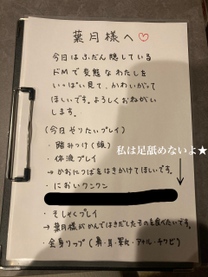 葉月様へ♡
今日はふだん隠している
ドMで変態なわたしを
いっぱい見て、かわいがって
ほしいです。よろしくおねがい
します。
(今日やりたいプレイ)
・踏みつけ(顔)
・体液プレイ
→かおにつばをはきかけてほしいです。
私は足舐めないよ★
・においクンクン
・そしゃくプレイ
→葉月様がかんではきだしたものを食べたいです。
・全身リップ(鼻・耳・